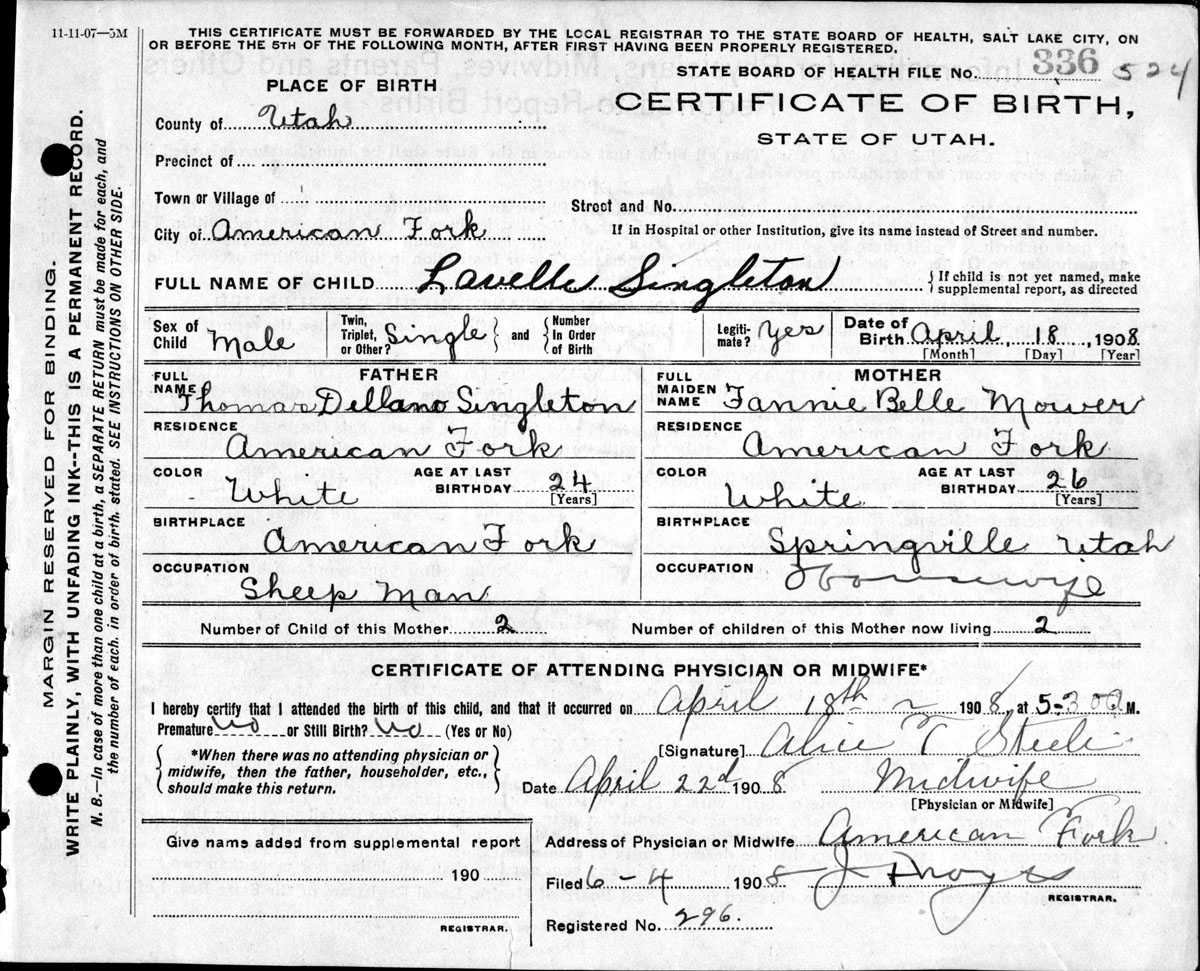 11-11-07—5M
THIS CERTIFICATE MUST BE FORWARDED BY THE LOCAL REGISTRAR TO THE STATE BOARD OF HEALTH, SALT LAKE CITY, ON
OR BEFORE THE 5TH OF THE FOLLOWING MONTH, AFTER FIRST HAVING BEEN PROPERLY REGISTERED.
STATE BOARD OF HEALTH FILE No. 336 524
PLACE OF BIRTH
CERTIFICATE OF BIRTH,
STATE OF UTAH.
County of Utah
Precinct of
Town or Village of
Street and No.
City of American Fork
If in Hospital or other Institution, give its name instead of Street and number.
FULL NAME OF CHILD Lavelle Singleton {If child is not yet named, make
supplemental report, as directed
Sex of Child Male Twin, Triplet, or Other? Single } and { Number In Order of Birth Legiti-mate? Yes Date of Birth April 18, 1908
[Month] [Day] [Year]
FATHER
FULL NAME Thomas Dellano Singleton
RESIDENCE
American Fork
COLOR White AGE AT LAST BIRTHDAY 24
[Years]
BIRTHPLACE
American Fork
OCCUPATION
Sheep Man
MOTHER
FULL MAIDEN NAME Fannie Belle Mower
RESIDENCE
American Fork
COLOR White AGE AT LAST BIRTHDAY 26
[Years]
BIRTHPLACE
Springville Utah
OCCUPATION
Housewife
Number of Child of this Mother 2 Number of children of this Mother now living 2
CERTIFICATE OF ATTENDING PHYSICIAN OR MIDWIFE*
I hereby certify that I attended the birth of this child, and that it occurred on April 18th 1908, at 5-30 a M.
Premature No or Still Birth? No (Yes or No)
{*When there was no attending physician or
midwife, then the father, householder, etc.,
should make this return.}
[Signature] Alice T Steele
Date April 22d 1908 Midwife
[Physician or Midwife]
Give name added from supplemental report
190
REGISTRAR.
Address of Physician or Midwife American Fork
Filed 6-4 1908
REGISTRAR.
Registered No. 296.
MARGIN RESERVED FOR BINDING.
WRITE PLAINLY, WITH UNFADING INK--THIS IS A PERMANENT RECORD.
N. B.—In case of more than one child at a birth, a SEPARATE RETURN must be made for each, and
the number of each, in order of birth, stated. SEE INSTRUCTIONS ON OTHER SIDE.